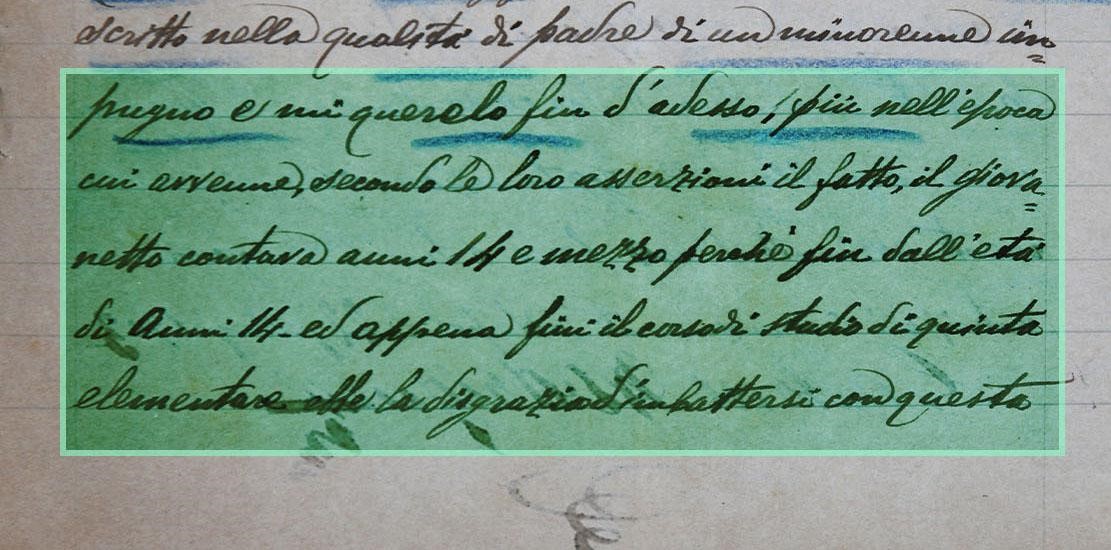 scritto nella qualità di padre di un minorenne im=
pugno e mi querelo fin d'adesso, più nell'epoca
cui avvenne, secondo le loro asserzioni il fatto, il giova=
netto contava anni 14 e mezzo perchè fin dall'età
di Anni 14 ed appena finì il corso di studio di quinta
elementare ebbe la disgrazia d'imbattersi con questa